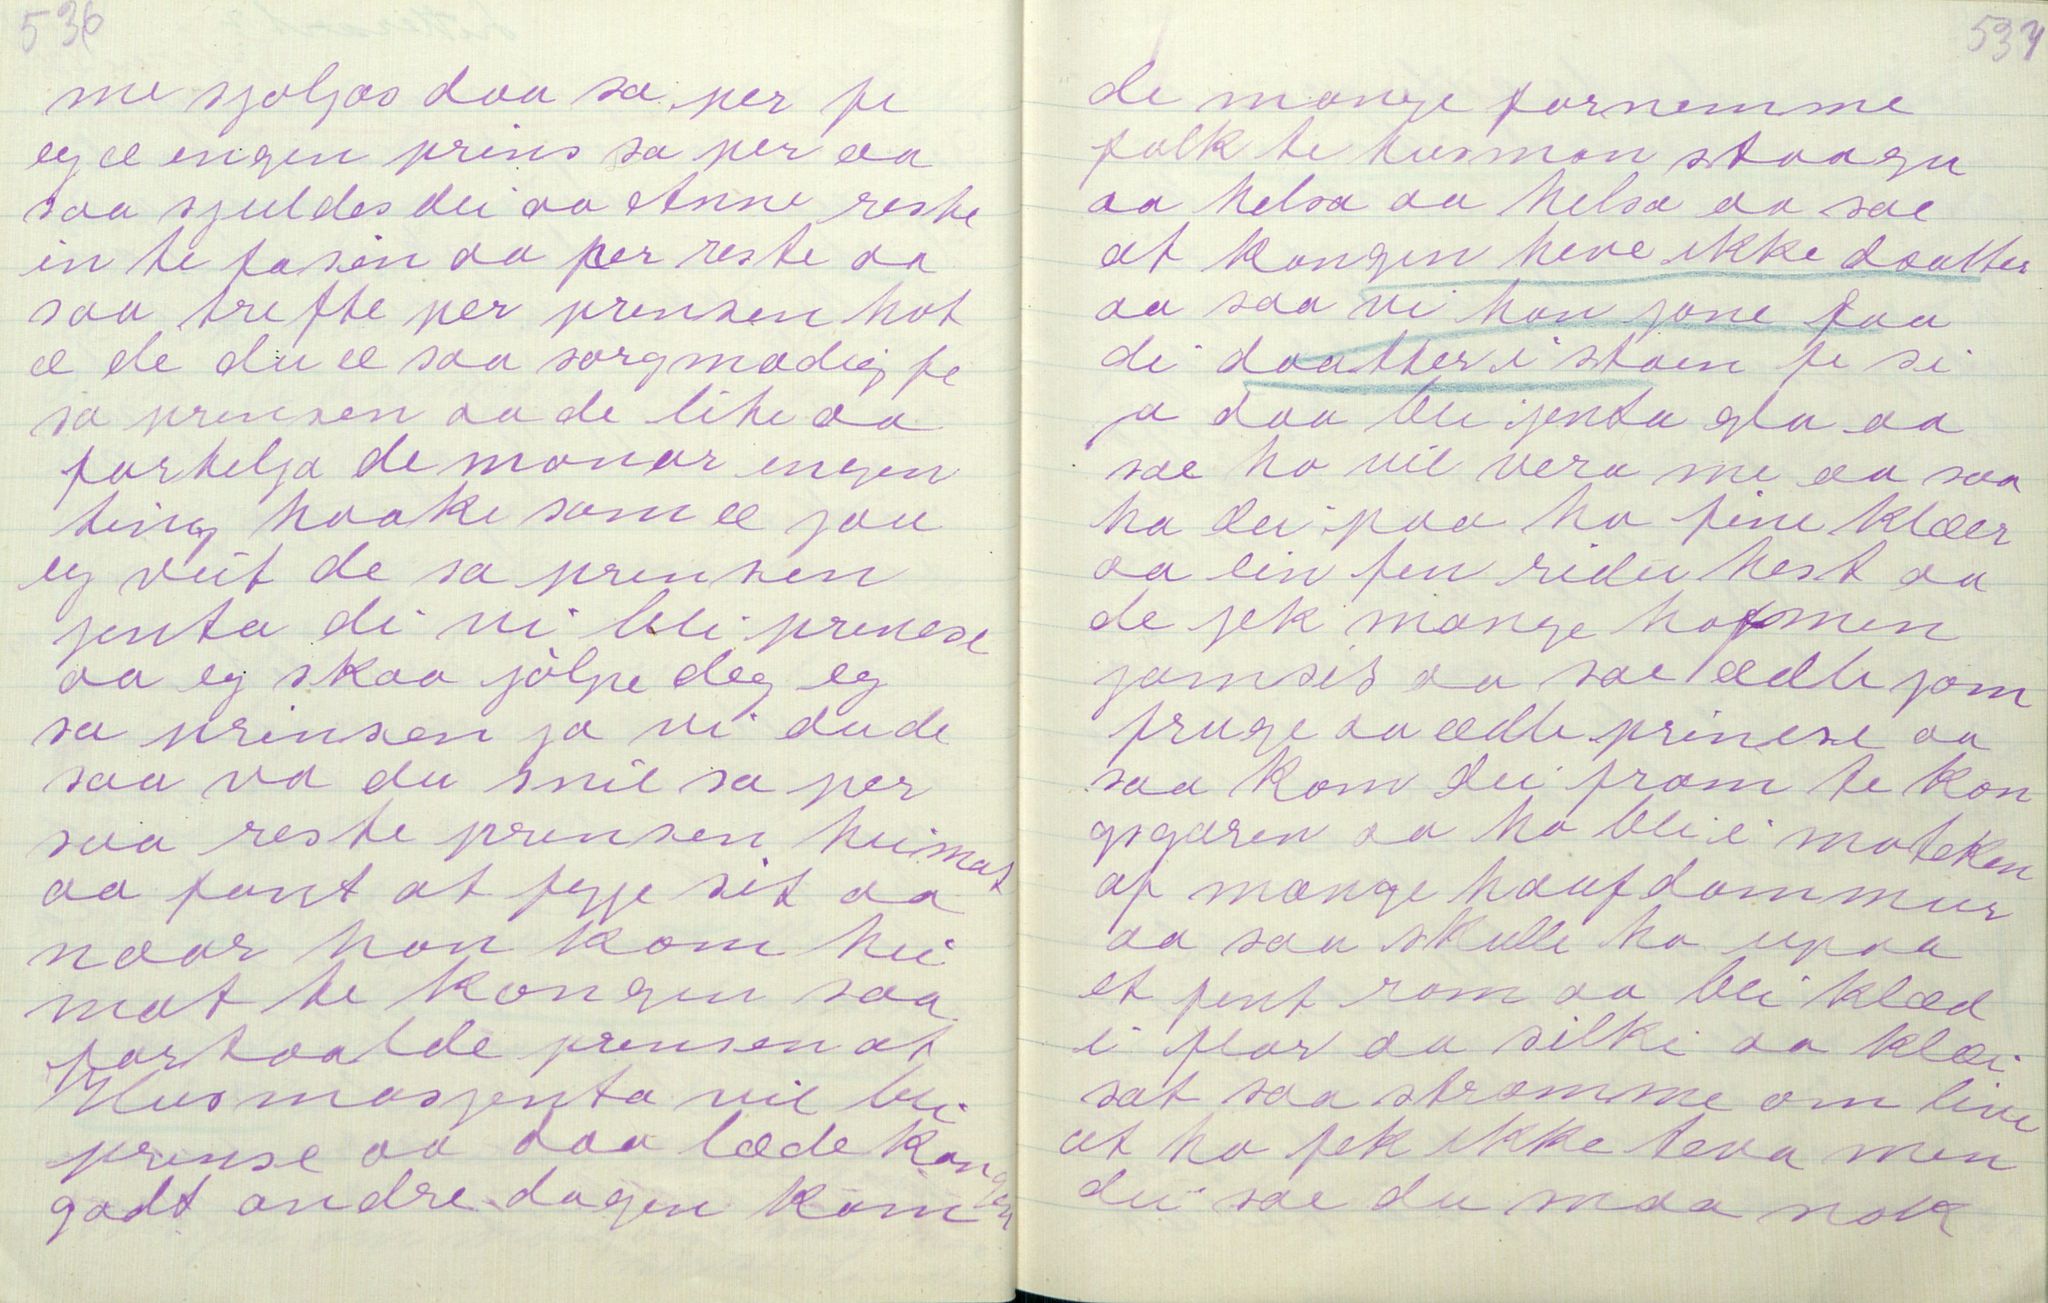 536
me sjoljas daa sa per fe
eg æ engen prins sa per aa
saa sjuldes dei aa Anne reste
in te fasèn aa per reste aa
saa trefte per prensen hot
æ de du æ saa sorgmodig fe
sa prensen aa de lite aa
fortelja de monar engen
ting haake som æ jau
eg veit de sa prensen
jenta di vi blei prinese
aa eg skaa jòlpe deg eg
sa prinsen ja vi du de
saa va du snil sa per
saa reste prensen heimat
aa fant at fyjje sit aa
naar han kom hei
mat te kongen saa
fortaalde prensen at
Husmasjenta vil bli
prense aa daa læde kongen
godt andre dagen kom
537
de mange fornemme
folk te husmon staagu
aa helsa aa helsa aa sae
at kongen heve ikke daatter
aa saa vi han jøne faa
di daatter i stæn fe si
ja daa blei jenta gla aa
sae ho vil vera me aa saa
ha dei paa ho fine klæer
aa ein fin ridei hest aa
de jek mange hofmen
jamsis aa sae ædle jom
fruge aa ædle prinese aa
saa kom dei fram te kon
gsgaren aa ho blei i moteken
af mange haafdammur
aa saa skulle ho upaa
et pent rom aa bli klæd
i flor aa silki aa klæi
sat saa stramme om livi
at ho fek ikke leva men
dei sae du maa nok